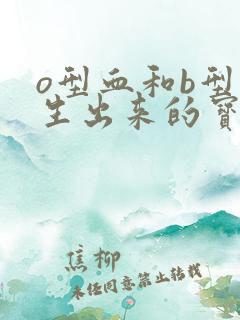 o型血和b型
生出来的宝
焦柳
未经同意禁止转载